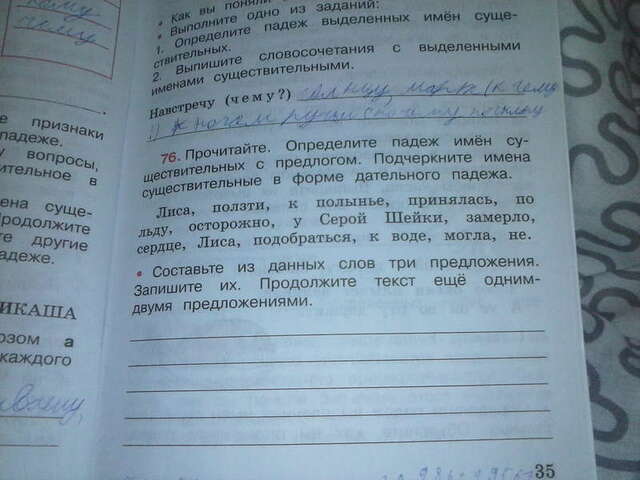 кому?
чему
• Как вы поняли
• Выполните одно из заданий:
1. Определите падеж выделенных имён суще-
ствительных.
2. Выпишите словосочетания с выделенными
именами существительными.
Навстречу (чему?) солнцу
е признаки
падеже.
у вопросы,
ительное в
ена суще-
Продолжите
те другие
адеже.
ИКАША
розом а
каждого
76. Прочитайте. Определите падеж имён су-
ществительных с предлогом. Подчеркните имена
существительные в форме дательного падежа.
Лиса, ползти, к полынье, принялась, по
льду, осторожно, у Серой Шейки, замерло,
сердце, Лиса, подобраться, к воде, могла, не.
• Составьте из данных слов три предложения.
Запишите их. Продолжите текст ещё одним-
двумя предложениями.
35